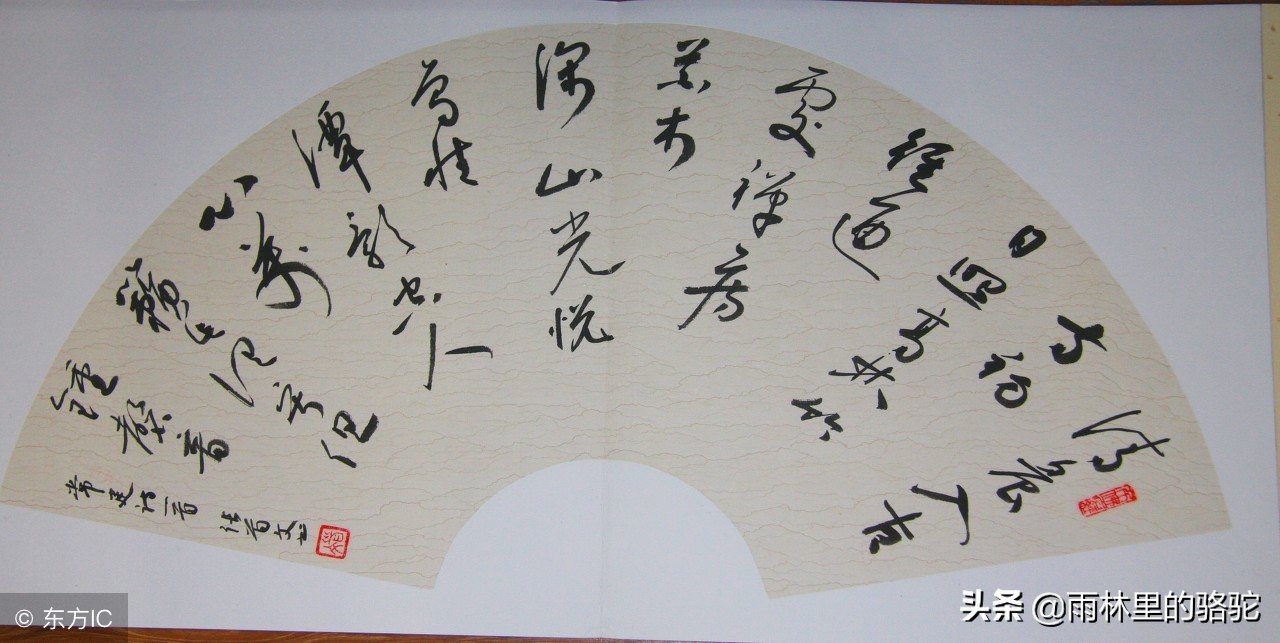 清晨入古
寺初
日照高林竹
径通
處禅房
花木
深山光悦
鸟性
潭影空人
心万
籁此俱寂但
鐘磬音
常建诗一首
© 东方IC
头条 @雨林里的骆驼